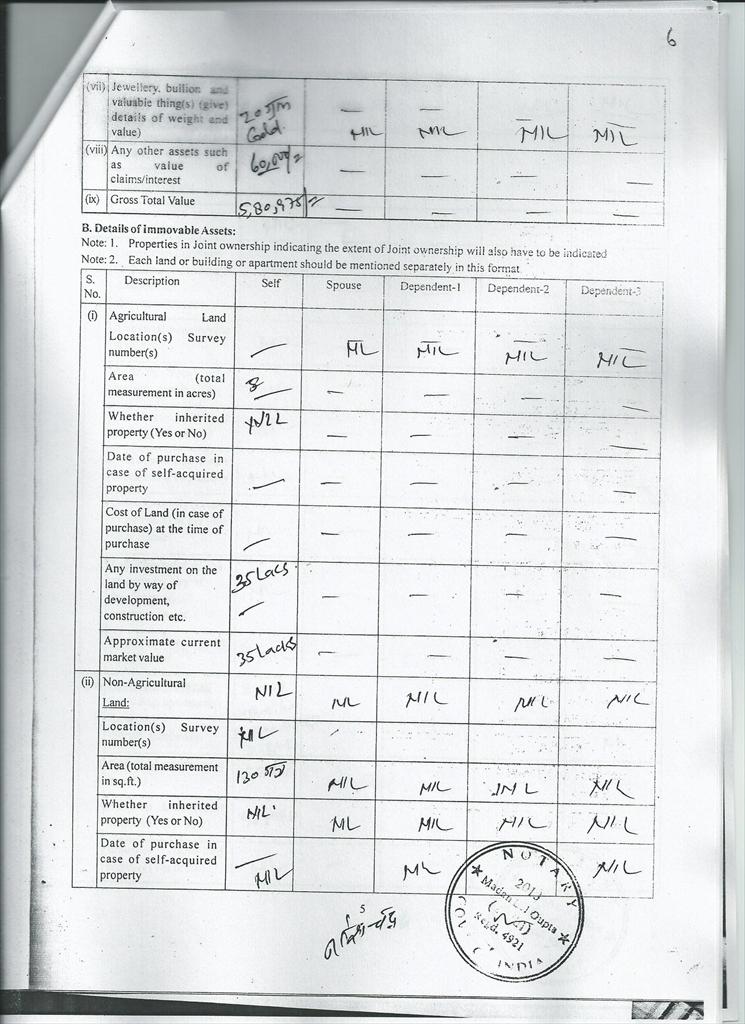 6
(vii) Jewellery, bullion and valuable thing(s) (give) details of weight and value) 20 ग्राम Gold. — NIL — NIL — NIL — NIL
(viii) Any other assets such as value of claims/interest 60,000/= — — — —
(ix) Gross Total Value 5,80,975/= — — — —
B. Details of immovable Assets:
Note: 1. Properties in Joint ownership indicating the extent of Joint ownership will also have to be indicated
Note: 2. Each land or building or apartment should be mentioned separately in this format
S. No. Description Self Spouse Dependent-1 Dependent-2 Dependent-3
(i) Agricultural Land Location(s) Survey number(s) — NIL NIL NIL NIL
Area (total measurement in acres) — — — — —
Whether inherited property (Yes or No) NIL — — — —
Date of purchase in case of self-acquired property — — — — —
Cost of Land (in case of purchase) at the time of purchase — — — — —
Any investment on the land by way of development, construction etc. 35 Lacs — — — — —
Approximate current market value 35 Lacks — — — —
(ii) Non-Agricultural Land: NIL NIL NIL NIL NIL
Location(s) Survey number(s) NIL
Area (total measurement in sq.ft.) 130 गज NIL NIL NIL NIL
Whether inherited property (Yes or No) NIL NIL NIL NIL NIL
Date of purchase in case of self-acquired property — NIL NIL NIL
NOTARY
Madan Lal Gupta
Regd. 4921
INDIA